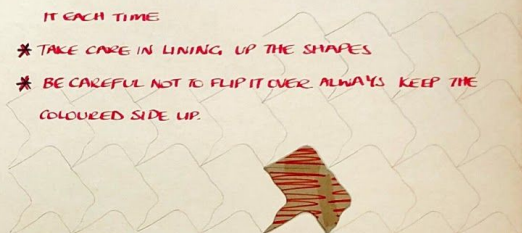 IT EACH TIME
* TAKE CARE IN LINING UP THE SHAPES
* BE CAREFUL NOT TO FLIP IT OVER ALWAYS KEEP THE
COLOURED SIDE UP.